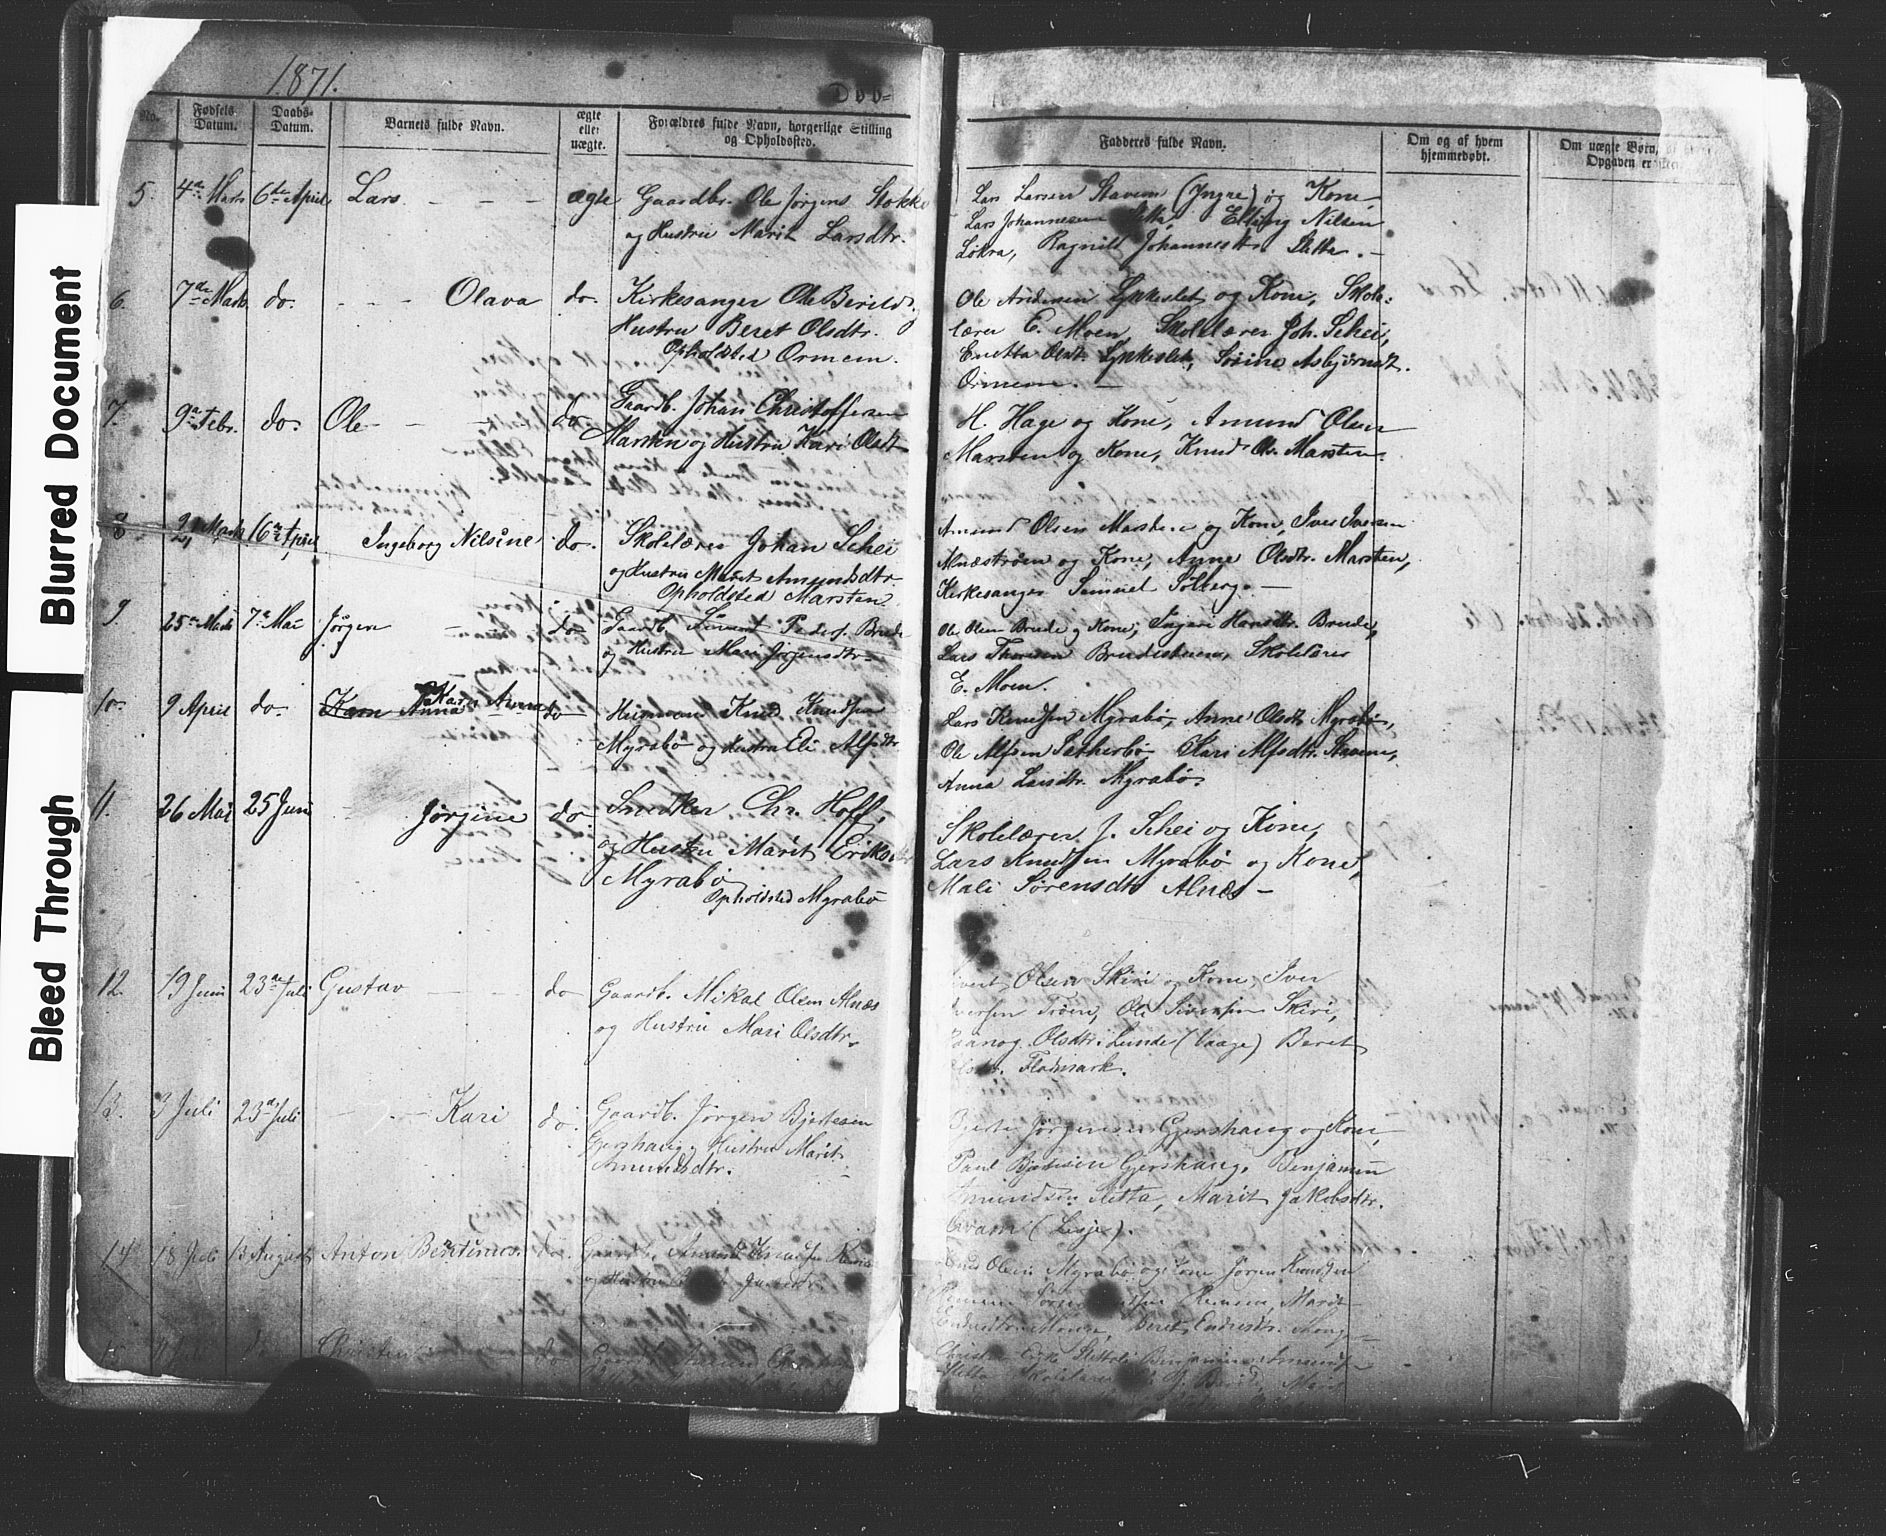 Blurred Document
Bleed Through
1871.
Døb=
No.
Fødsels Datum.
Daabs- Datum.
Barnets fulde Navn.
ægte eller uægte.
Forældres fulde Navn, borgerlige Stilling og Opholdssted.
Fadderes fulde Navn.
Om og af hvem hjemmedøbt.
Om uægte Børn,
Opgaven er
5. 4de Marts 6te April Lars ægte Gaardbr. Ole Jørgens. Stokke
og Hustru Marit Larsdtr.
Lars Larsen Stavem (Yngre) og Kone
Lars Johannesen Sletta, Elling Nilsen
Løkra, Ragnild Johannesdtr Sletta.
6. 7de Marts do. Olava do. Kirkesanger Ole Berild
Hustru Beret Olsdtr.
Opholdsted Ormem.
Ole Andersen Lykkeslet og Kone, Skole:
lærer E. Moen, Skolelærer Joh. Schei,
Enetta Olsdt. Lykkeslet, Sørine Asbjørnsdt.
Ormem.
7. 9de Febr. do. Ole do Gaardb. Johan Christoffersen
Marsten og Hustru Kari Olsdt
H. Hage og Kone, Amund Olsen
Marsten og Kone, Knud Ols. Marsten.
8. 2, Marts 16de April Ingeborg Nilsine do. Skolelærer Johan Schei
og Hustru Maret Amundsdtr.
Opholdsted Marsten
Amund Olsen Marsten og Kone, Iver Iversen
Alnæstrøen og Kone, Anne Olsdtr. Marsten,
Kirkesanger Samuel Solberg.
9 25de Marts 7de Mai Jørgen do Gaardb. Peders. Brude
og Hustru Mari Jørgensdtr
Ole Olsen Brude og Kone, Ingeri Hansdtr. Brude,
Lars Thoresen Brudestuen, Skolelærer
E. Moen.
10. 9 April do. Karn Anna Kari Anna do Huusmand Knud Knudsen
Myrabø og Hustru Eli Alfsdtr
Lars Knudsen Myrabø, Anne Olsdt Myrabø,
Ole Alfsen Sætherbø Kari Alfsdtr. Stavem,
Anna Larsdtr. Myrabø.
11. 26 Mai 25 Juni Jørgine do. Snedker Chr. Hoff,
og Hustru Marit Eriks
Myrabø
Opholdsted Myrabø
Skolelærer J. Schei og Kone,
Lars Knudsen Myrabø og Kone,
Mali Sørensdtr Alnæs
12. 19 Juni 23de Juli Gustav do Gaardb. Mikal Olsen Alnæs
og Hustru Mari Olsdtr.
Sivert Olsen Skiri og Kone, Iver
Iversen Trøen, Ole Siversen Skiri,
Olsdtr. Lunde (Vaage) Beret
Flatmark.
13. 3 Juli 23de Juli Kari do. Gaardb. Jørgen Bjertesen
Gjershaug, Hustru Marit
Amundsdtr.
Jørgensen Gjershaug og Kone,
Paul Bjertesen Gjershaug, Benjamin
Amundsen Sletta, Marit Jakobsdtr.
(Lesje).
14 18 Juli 13 August Anton Bentinus do. Gaardb. Amund Knudsen
og Hustru
Olsen Myrabø og Kone Jørgen Knudsen
Remmem, Marit
Endresdtr. Monge, Beret Endresdtr. Monge
15 Juli do Christen do Gaardb.
Benjamin Amundsen
Sletta Skolelærer